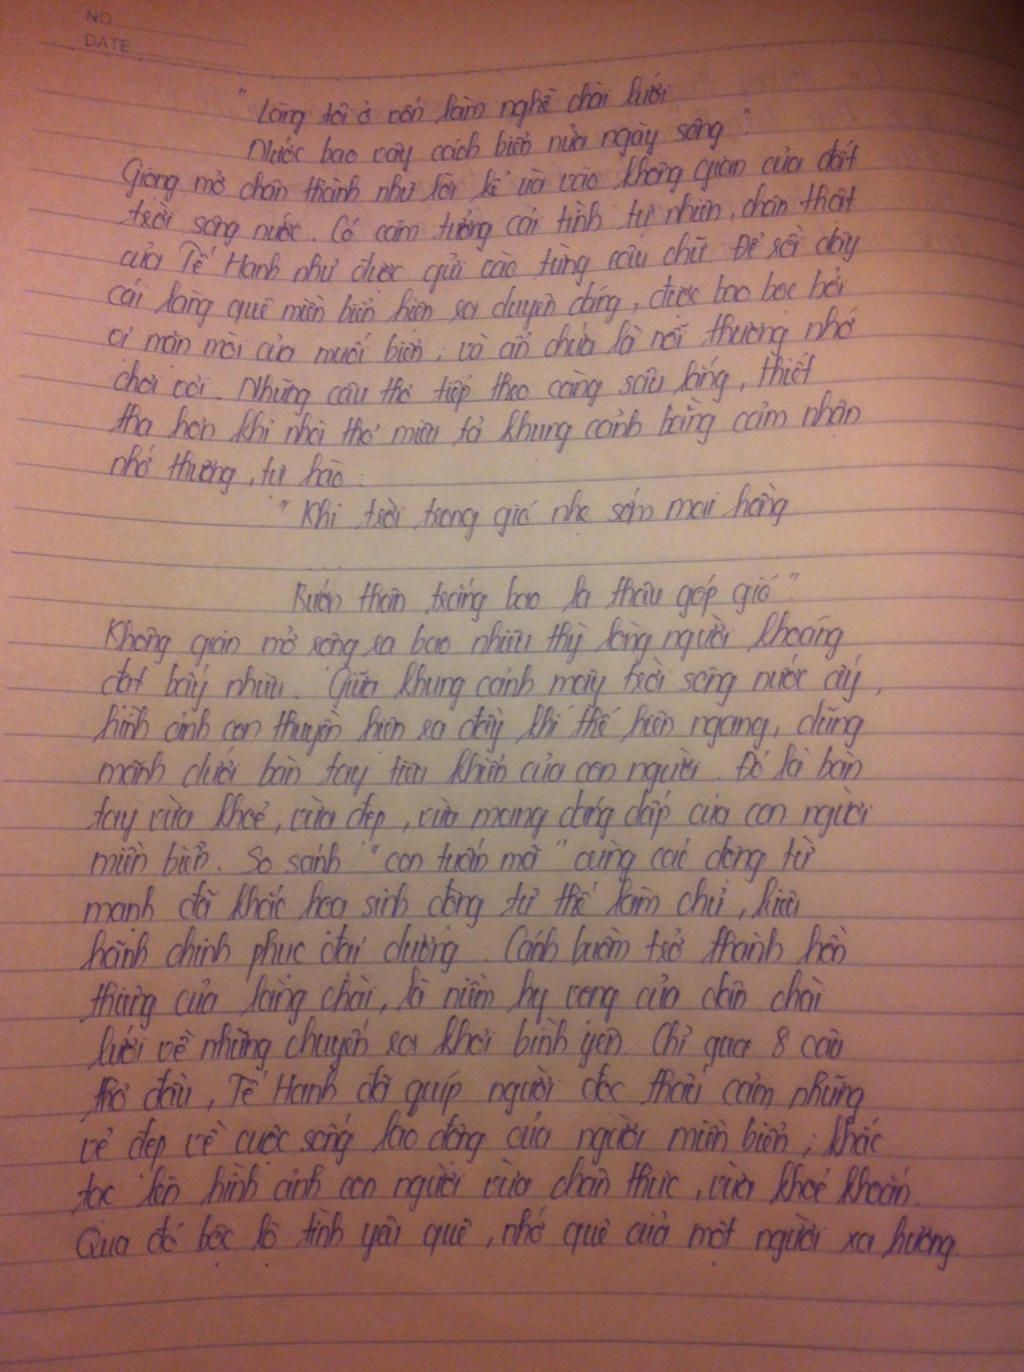 NO
DATE
" Làng tôi ở vốn làm nghề chài lưới
Nước bao vây cách biển nửa ngày sông ".
Giọng mở chân thành như lời kể và vào không gian của đất
trời sông nước. Có cảm tưởng cái tình tự nhiên, chân thật
của Tế Hanh như được gửi vào từng câu chữ. Để rồi đây
cái làng quê miền biển hiện ra duyên dáng, được bao bọc bởi
vị mặn mòi của muối biển, và ẩn chứa là nỗi thương nhớ
chơi vơi. Những câu thơ tiếp theo càng sâu lắng, thiết
tha hơn khi nhà thơ miêu tả khung cảnh bằng cảm nhận
nhớ thương, tự hào :
" Khi trời trong gió nhẹ sớm mai hồng
Rướn thân trắng bao la thâu góp gió ".
Không gian mở rộng ra bao nhiêu thì lòng người khoáng
đạt bấy nhiêu. Giữa khung cảnh mây trời sông nước ấy,
hình ảnh con thuyền hiện ra đầy khí thế hiên ngang, dũng
mãnh dưới bàn tay điều khiển của con người. Đó là bàn
tay vừa khoẻ, vừa đẹp, vừa mang dáng dấp của con người
miền biển. So sánh " con tuấn mã " cùng các động từ
mạnh đã khắc hoạ sinh động tư thế làm chủ, kiêu
hãnh chinh phục đại dương. Cánh buồm trở thành hồn
thiêng của làng chài, là niềm hy vọng của dân chài
lưới về những chuyến ra khơi bình yên. Chỉ qua 8 câu
thơ đầu, Tế Hanh đã guíp người đọc thấu cảm những
vẻ đẹp về cuộc sống lao động của người miền biển; khắc
tạc lên hình ảnh con người vừa chân thực, vừa khoẻ khoắn.
Qua đó bộc lộ tình yêu quê, nhớ quê của một người xa hương.